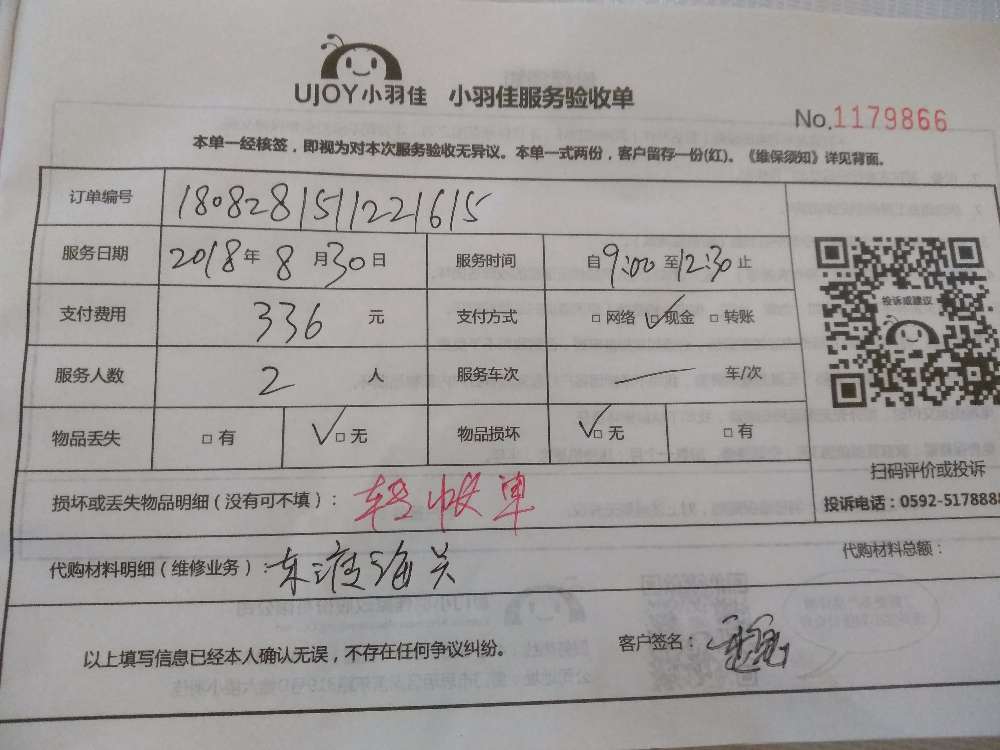 UJOY小羽佳 小羽佳服务验收单
No.1179866
本单一经核签，即视为对本次服务验收无异议。本单一式两份，客户留存一份(红)。《维保须知》详见背面。
订单编号 1808281511221615
服务日期 2018年8月30日 服务时间 自9:00至12:30止
支付费用 336 元 支付方式 □网络 ✓□现金 □转账
投诉或建议
服务人数 2 人 服务车次 — 车/次
物品丢失 □有 ✓□无 物品损坏 ✓□无 □有
扫码评价或投诉
损坏或丢失物品明细（没有可不填）： 轻帐单
投诉电话：0592-5178888
代购材料明细（维修业务）：东渡海关
代购材料总额：
以上填写信息已经本人确认无误，不存在任何争议纠纷。 客户签名：